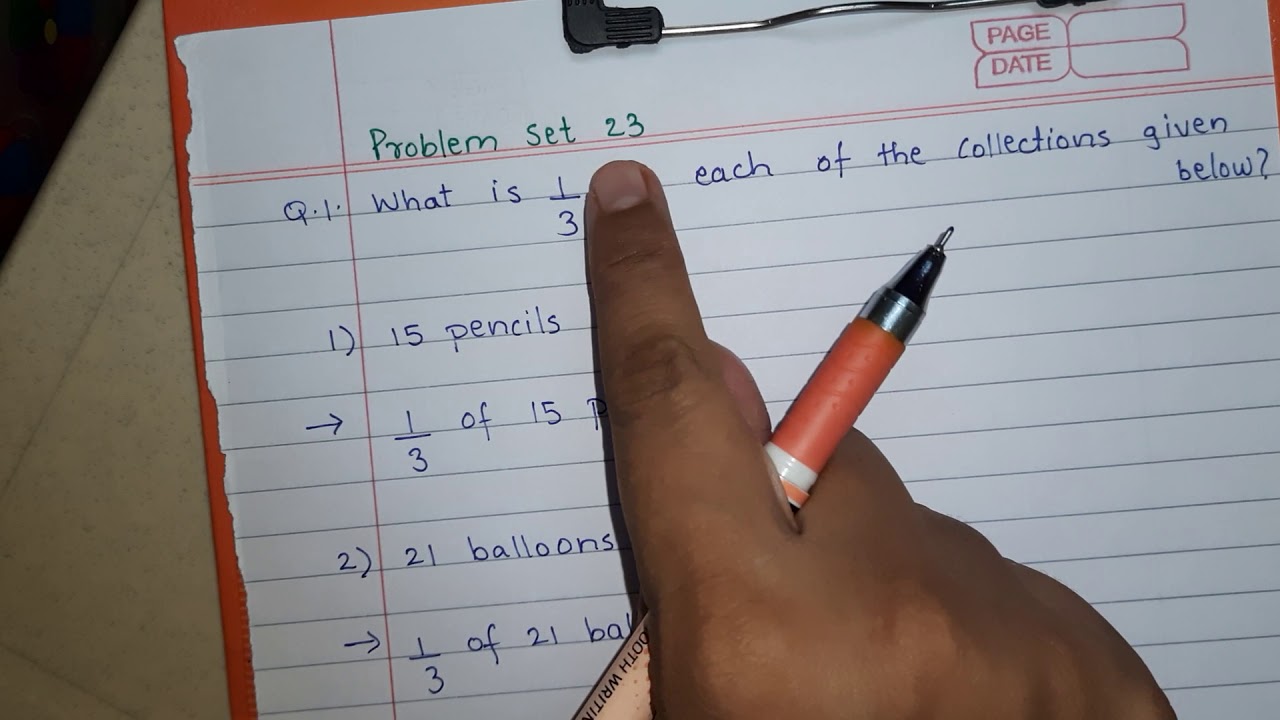 PAGE
DATE
Problem set 23
Q.1. What is 1/3 each of the collections given
below?
1) 15 pencils
→ 1/3 of 15
2) 21 balloons
→ 1/3 of 21
OOTH WRITIN